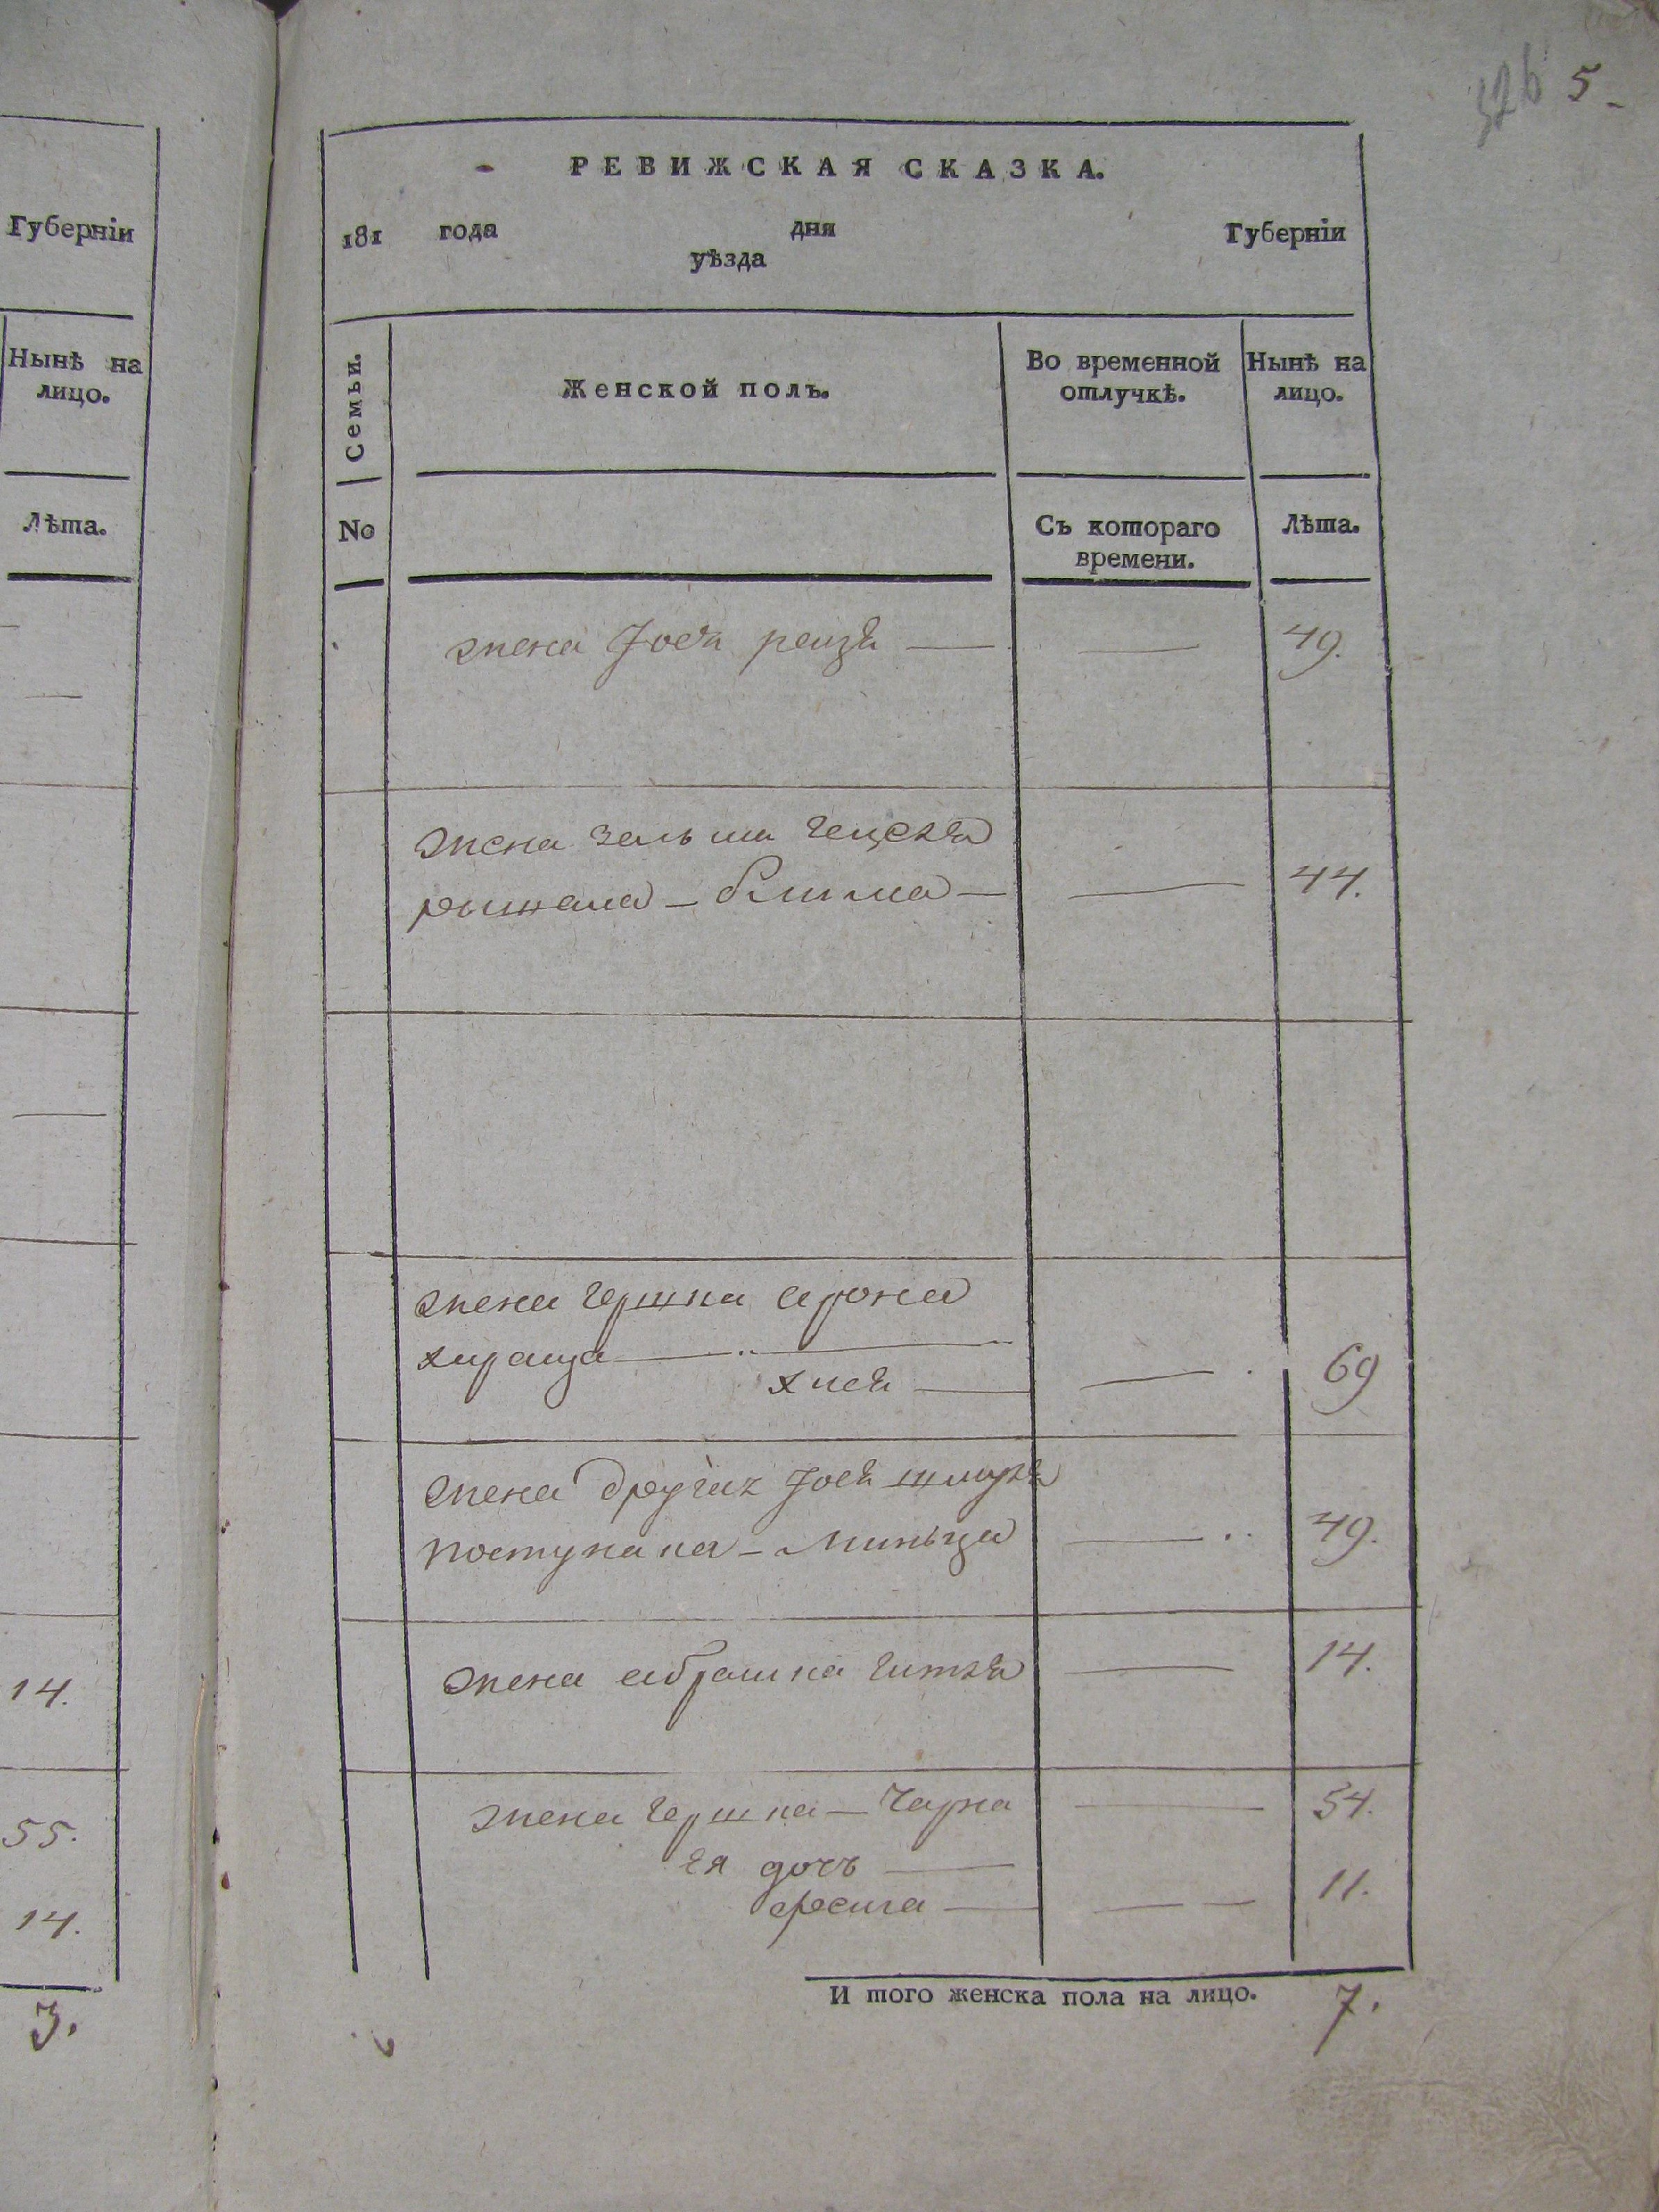 Губерніи
Нынѣ на
лицо.
Лѣта.
14.
55.
14.
3.
326 5.
РЕВИЖСКАЯ СКАЗКА.
181 года дня Губерніи
уѣзда
Семьи.
Женской полъ.
Во временной
отлучкѣ.
Нынѣ на
лицо.
№
Съ котораго
времени.
Лѣта.
жена Іося рейзя 49.
жена
44.
жена гершка арона
хася 69
жена Іося
миньца 49.
жена абрашка гитля 14.
жена гершка — Чарна 54.
Ея дочь
11.
И того женска пола на лицо. 7.